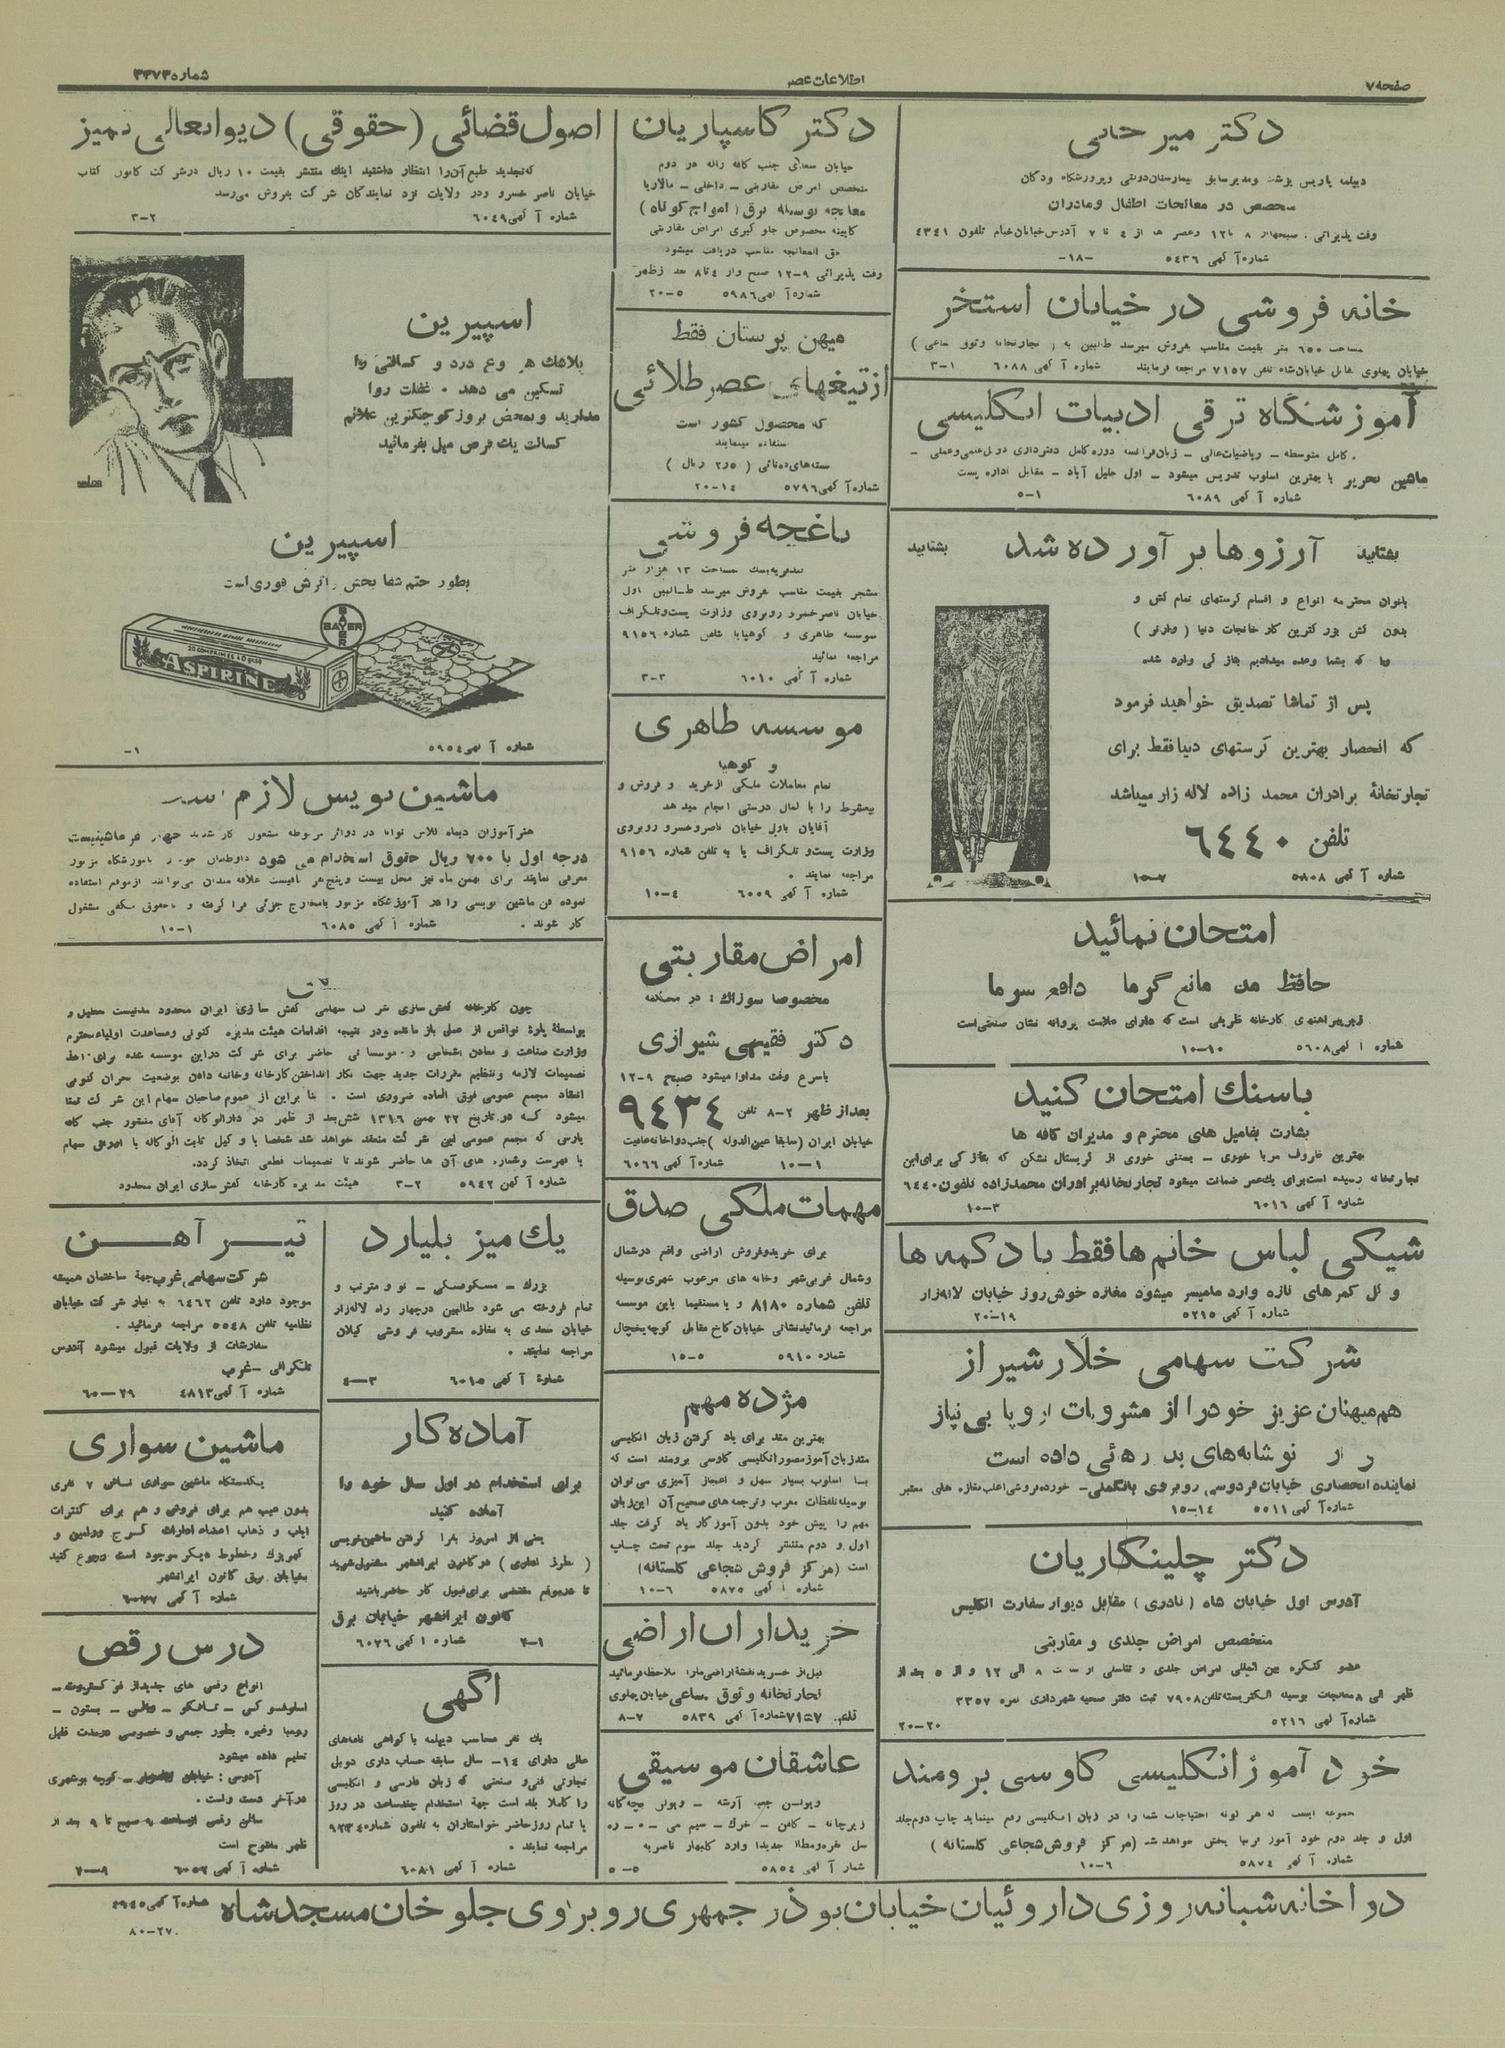 صفحه ۷
اطلاعات عصر
شماره ۳۳۷۳
دکتر میر
متخصص در معالجات اطفال و مادران
شماره آگهی ۵۴۳۶ -۱۸-
خانه فروشی در خیابان استخر
خیابان پهلوی مقابل خیابان شاه تلفن ۷۱۵۷ مراجعه فرمایند شماره آگهی ۶۰۸۸ ۱-۳
آموزشگاه ترقی ادبیات انگلیسی
کامل متوسطه - ریاضیات عالی - زبان فرانسه دوره کامل دفترداری دوبل علمی و عملی -
ماشین تحریر با بهترین اسلوب تدریس میشود - اول خلیل آباد - مقابل اداره پست
شماره آگهی ۶۰۸۹ ۱-۵
بشتابید آرزوها برآورده شد بشتابید
بانوان محترمه انواع و اقسام کرستهای تمام کش و
بدون کش بزرگترین کارخانجات دنیا ( وارنر )
که بشما وعده میدادیم بتازگی وارد شده
پس از تماشا تصدیق خواهید فرمود
که انحصار بهترین کرستهای دنیا فقط برای
تجارتخانهٔ برادران محمد زاده لاله زار میباشد
تلفن ۶۴۴۰
شماره آگهی ۵۸۰۸ ۷-۱۵
امتحان نمائید
حافظ مانع گرما دافع سرما
زیرپیراهنهای کارخانه ظریفی است که دارای علامت پروانه نشان صنعتی است
شماره آگهی ۵۶۰۸ ۱۰-۱۰
باسنك امتحان کنید
بشارت بفامیل های محترم و مدیران کافه ها
بهترین ظروف مربا خوری - بستنی خوری از کریستال نشکن که بتازگی برای این
تجارتخانه رسیده است برای یك عمر ضمانت میشود تجارتخانه برادران محمدزاده تلفون ۶۴۴۰
شماره آگهی ۶۰۱۶ ۳-۱۰
شیکی لباس خانم ها فقط با دکمه ها
و گل کمرهای تازه وارد مامیسر میشود مغازه خوش روز خیابان لاله زار
شماره آگهی ۵۲۱۵ ۱۹-۲۰
شرکت سهامی خلار شیراز
هم میهنان عزیز خود را از مشروبات اروپا بی نیاز
نوشابه‌های بد رهائی داده است
نماینده انحصاری خیابان فردوسی روبروی بانك ملی - خورده فروشی اغلب مغازه های معتبر
شماره آگهی ۵۵۱۱ ۱۴-۱۵
دکتر چلینگاریان
آدرس اول خیابان شاه ( نادری ) مقابل دیوار سفارت انگلیس
متخصص امراض جلدی و مقاربتی
عضو کنگره بین المللی امراض جلدی و تناسلی از ساعت ۸ الی ۱۲ و از ۵ بعد از
ظهر الی ۸ معالجات بوسیله الکتریسته تلفن ۷۹۰۸ ثبت دفتر صحیه شهرداری نمره ۳۳۵۷
شماره آگهی ۵۲۱۶ ۲۰-۲۰
خود آموز انگلیسی کاوسی برومند
اول و جلد دوم خود آموز پخش خواهد شد (مرکز فروش شجاعی گلستانه )
شماره آگهی ۵۸۷۴ ۶-۱۰
دکتر کاسپاریان
خیابان سعدی جنب کافه ژاله در دوم
متخصص امراض مقاربتی - داخلی - مالاریا
معالجه بوسیله برق ( امواج کوتاه )
کابینه مخصوص جلوگیری امراض مقاربتی
حق المعالجه مناسب دریافت میشود
وقت پذیرائی ۹-۱۲ صبح و از ۴ تا ۸ بعد از ظهر
شماره آگهی ۵۹۸۶ ۵-۲۰
میهن پرستان فقط
از تیغهای عصر طلائی
که محصول کشور است
استفاده مینمایند
بسته‌های ده تائی ( ۲٫۵ ریال )
شماره آگهی ۵۷۹۶ ۱۴-۲۰
باغچه فروشی
مشجر بقیمت مناسب بفروش میرسد طالبین اول
خیابان ناصرخسرو روبروی وزارت پست و تلگراف
موسسه طاهری و کوهیا با تلفن شماره ۹۱۵۶
مراجعه نمائید
شماره آگهی ۶۰۱۰ ۳-۳
موسسه طاهری
و کوهیا
تمام معاملات ملکی از خرید و فروش و
بیعشرط را با کمال درستی انجام میدهد
آقایان باول خیابان ناصرخسرو روبروی
وزارت پست و تلگراف یا به تلفن شماره ۹۱۵۶
مراجعه نمایند .
شماره آگهی ۶۰۰۹ ۴-۱۰
امراض مقاربتی
مخصوصا سوزاك : در محکمه
دکتر فقیهی شیرازی
باسرع وقت مداوا میشود صبح ۹-۱۲
بعد از ظهر ۲-۸ تلفن ۹۴۳۴
خیابان ایران ( سابقا عین الدوله ) جنب دواخانه عافیت
شماره آگهی ۶۰۶۶ ۱-۱۰
مهمات ملکی صدق
برای خرید و فروش اراضی واقع در شمال
و شمال غربی شهر و خانه های مرغوب شهری بوسیله
تلفن شماره ۸۱۸۰ و یا مستقیما باین موسسه
مراجعه فرمائید نشانی خیابان کاخ مقابل کوچه یخچال
شماره ۵۹۱۰ ۵-۱۵
مژده مهم
بهترین متد برای یاد گرفتن زبان انگلیسی
متد زبان آموز مصور انگلیسی کاوسی برومند است که
با اسلوب بسیار سهل و اعجاز آمیزی می توان
بوسیله تلفظات معرب و ترجمه های صحیح آن این زبان
مهم را پیش خود بدون آموزگار یاد گرفت جلد
اول و دوم منتشر گردید جلد سوم تحت چاپ
است (مرکز فروش شجاعی گلستانه)
شماره آگهی ۵۸۷۵ ۶-۱۰
خریداران اراضی
قبل از خرید نقشهٔ اراضی ما را ملاحظه فرمائید
تجارتخانه وثوق ساعی خیابان پهلوی
تلفن ۷۱۵۷ شماره آگهی ۵۸۳۹ ۷-۸
عاشقان موسیقی
شماره آگهی ۵۸۵۴ ۵-۵
اصول قضائی (حقوقی) دیوانعالی تمیز
که تجدید طبع آن را انتظار داشتید اینك منتشر بقیمت ۱۰ ریال در شرکت کانون کتاب
خیابان ناصر خسرو و در ولایات نزد نمایندگان شرکت بفروش می‌رسد
شماره آگهی ۶۰۴۹ ۲-۳
اسپیرین
بلاشك هر نوع درد و کسالتی را
تسکین می دهد . غفلت روا
مدارید و بمحض بروز کوچکترین علائم
کسالت یك قرص میل بفرمائید
اسپیرین
بطور حتم شفا بخش و اثرش فوری است
BAYER
20 COMPRIMES
ASPIRINE
شماره آگهی ۵۹۵۴ ۱-
ماشین نویس لازم است
درجه اول با ۷۰۰ ریال حقوق استخدام می شود
نموده فن ماشین نویسی را در آموزشگاه مزبور بامخارج جزئی فرا گرفته و باحقوق مکفی مشغول
کار شوند . شماره آگهی ۶۰۸۵ ۱-۱۰
چون کارخانه کفش سازی شرکت سهامی کفش سازی ایران محدود مدتیست تعطیل و
بواسطهٔ پارهٔ نواقص از عمل باز مانده و در نتیجه اقدامات هیئت مدیره کنونی و مساعدت اولیاء محترم
وزارت صناعت و معادن اشخاص و موسساتی حاضر برای شرکت در این موسسه شده برای اخذ
تصمیمات لازمه و تنظیم مقررات جدید جهت بکار انداختن کارخانه و خاتمه دادن بوضعیت بحران کنونی
انعقاد مجمع عمومی فوق العاده ضروری است . بنا براین از عموم صاحبان سهام این شرکت تمنا
میشود که در تاریخ ۲۲ بهمن ۱۳۱۶ شش بعد از ظهر در دارالوکاله آقای منشور جنب کافه
پارس که مجمع عمومی این شرکت منعقد خواهد شد شخصا یا وکیل ثابت الوکاله با
با فهرست و شماره های آن ها حاضر شوند تا تصمیمات قطعی اتخاذ گردد.
شماره آگهی ۵۹۴۲ ۲-۳ هیئت مدیره کارخانه کفش سازی ایران محدود
یك میز بلیارد
بزرك - مسکوسکی - نو و مرتب و
تمام فروخته می شود طالبین در چهار راه لاله زار
خیابان سعدی به مغازه مشروب فروشی گیلان
مراجعه نمایند .
شمارهٔ آگهی ۶۰۱۵ ۳-۴
آماده کار
برای استخدام در اول سال خود را
آماده کنید
یعنی از امروز بفرا گرفتن ماشین نویسی
در کانون ایرانشهر مشغول شوید
تا در موقع مقتضی برای قبول کار حاضر باشید
کانون ایرانشهر خیابان برق
شماره آگهی ۶۰۷۶ ۱-۲
آگهی
یك نفر محاسب دیپلمه با گواهی نامه‌های
عالی دارای ۱۴ سال سابقه حساب داری دوبل
تجارتی فنی و صنعتی که زبان فارسی و انگلیسی
را کاملا بلد است جهة استخدام چند ساعت در روز
یا تمام روز حاضر خواستاران به تلفون شماره ۹۲۳۴
مراجعه نمایند .
شماره آگهی ۶۰۸۱
تیر آهن
شرکت سهامی غرب جهة ساختمان همیشه
موجود دارد تلفن ۶۴۶۲ به انبار شرکت خیابان
نظامیه تلفن ۵۵۴۸ مراجعه فرمائید .
سفارشات از ولایات قبول میشود آدرس
تلگرافی - غرب
شماره آگهی ۴۸۱۳ ۲۹-۶۰
ماشین سواری
یکدستگاه ماشین سواری ناش ۷ نفری
بدون عیب هم برای فروش و هم برای کنترات
ایاب و ذهاب اعضاء ادارات کرج ورامین و
کهریزك و خطوط دیگر موجود است رجوع کنید
بخیابان برق کانون ایرانشهر
شماره آگهی ۶۰۷۷
درس رقص
اسلوفوکس - تانگو - والس - بستون -
رومبا وغیره بطور جمعی و خصوصی در مدت قلیل
تعلیم داده میشود
در آخر دست راست .
سالن رقص از ساعت ۹ صبح تا ۹ بعد از
ظهر مفتوح است
شماره آگهی ۶۰۵۲ ۹-۲۰
دواخانه شبانه روزی داروئیان خیابان بوذرجمهری روبروی جلوخان مسجد شاه
شماره آگهی ۴۹۴۵
۲۷-۸۰